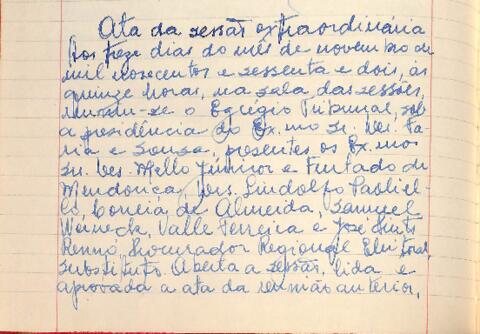 Ata da sessão extraordinária
Aos treze dias do mês de novembro de
mil novecentos e sessenta e dois, às
quinze horas, na sala das sessões,
reuniu-se o Egrégio Tribunal, sob
a presidência do Ex.mo Sr. Des. Fa-
ria e Souza, presentes os Ex.mos
Srs. Des. Mello Júnior e Furtado de
Mendonça, Drs. Lindolfo Paoliel-
lo, Correia de Almeida, Samuel
Werneck, Valle Ferreira e José
Rennó, Procurador Regional Eleitoral,
Substituto. Aberta a sessão, lida e
aprovada a ata da reunião anterior,